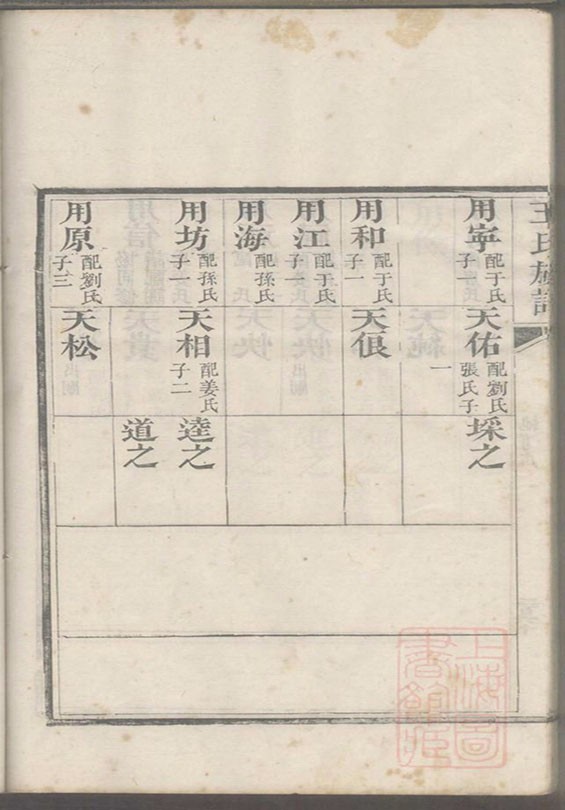 王氏族譜
用寧
配于氏
子一
天佑
配劉氏
張氏子
一
埰之
用和
配于氏
子一
天佷
用江
配于氏
子一
用海
配孫氏
用坊
配孫氏
子一
天相
配姜氏
子二
逵之
道之
用原
配劉氏
子三
天松
上海圖
書館藏